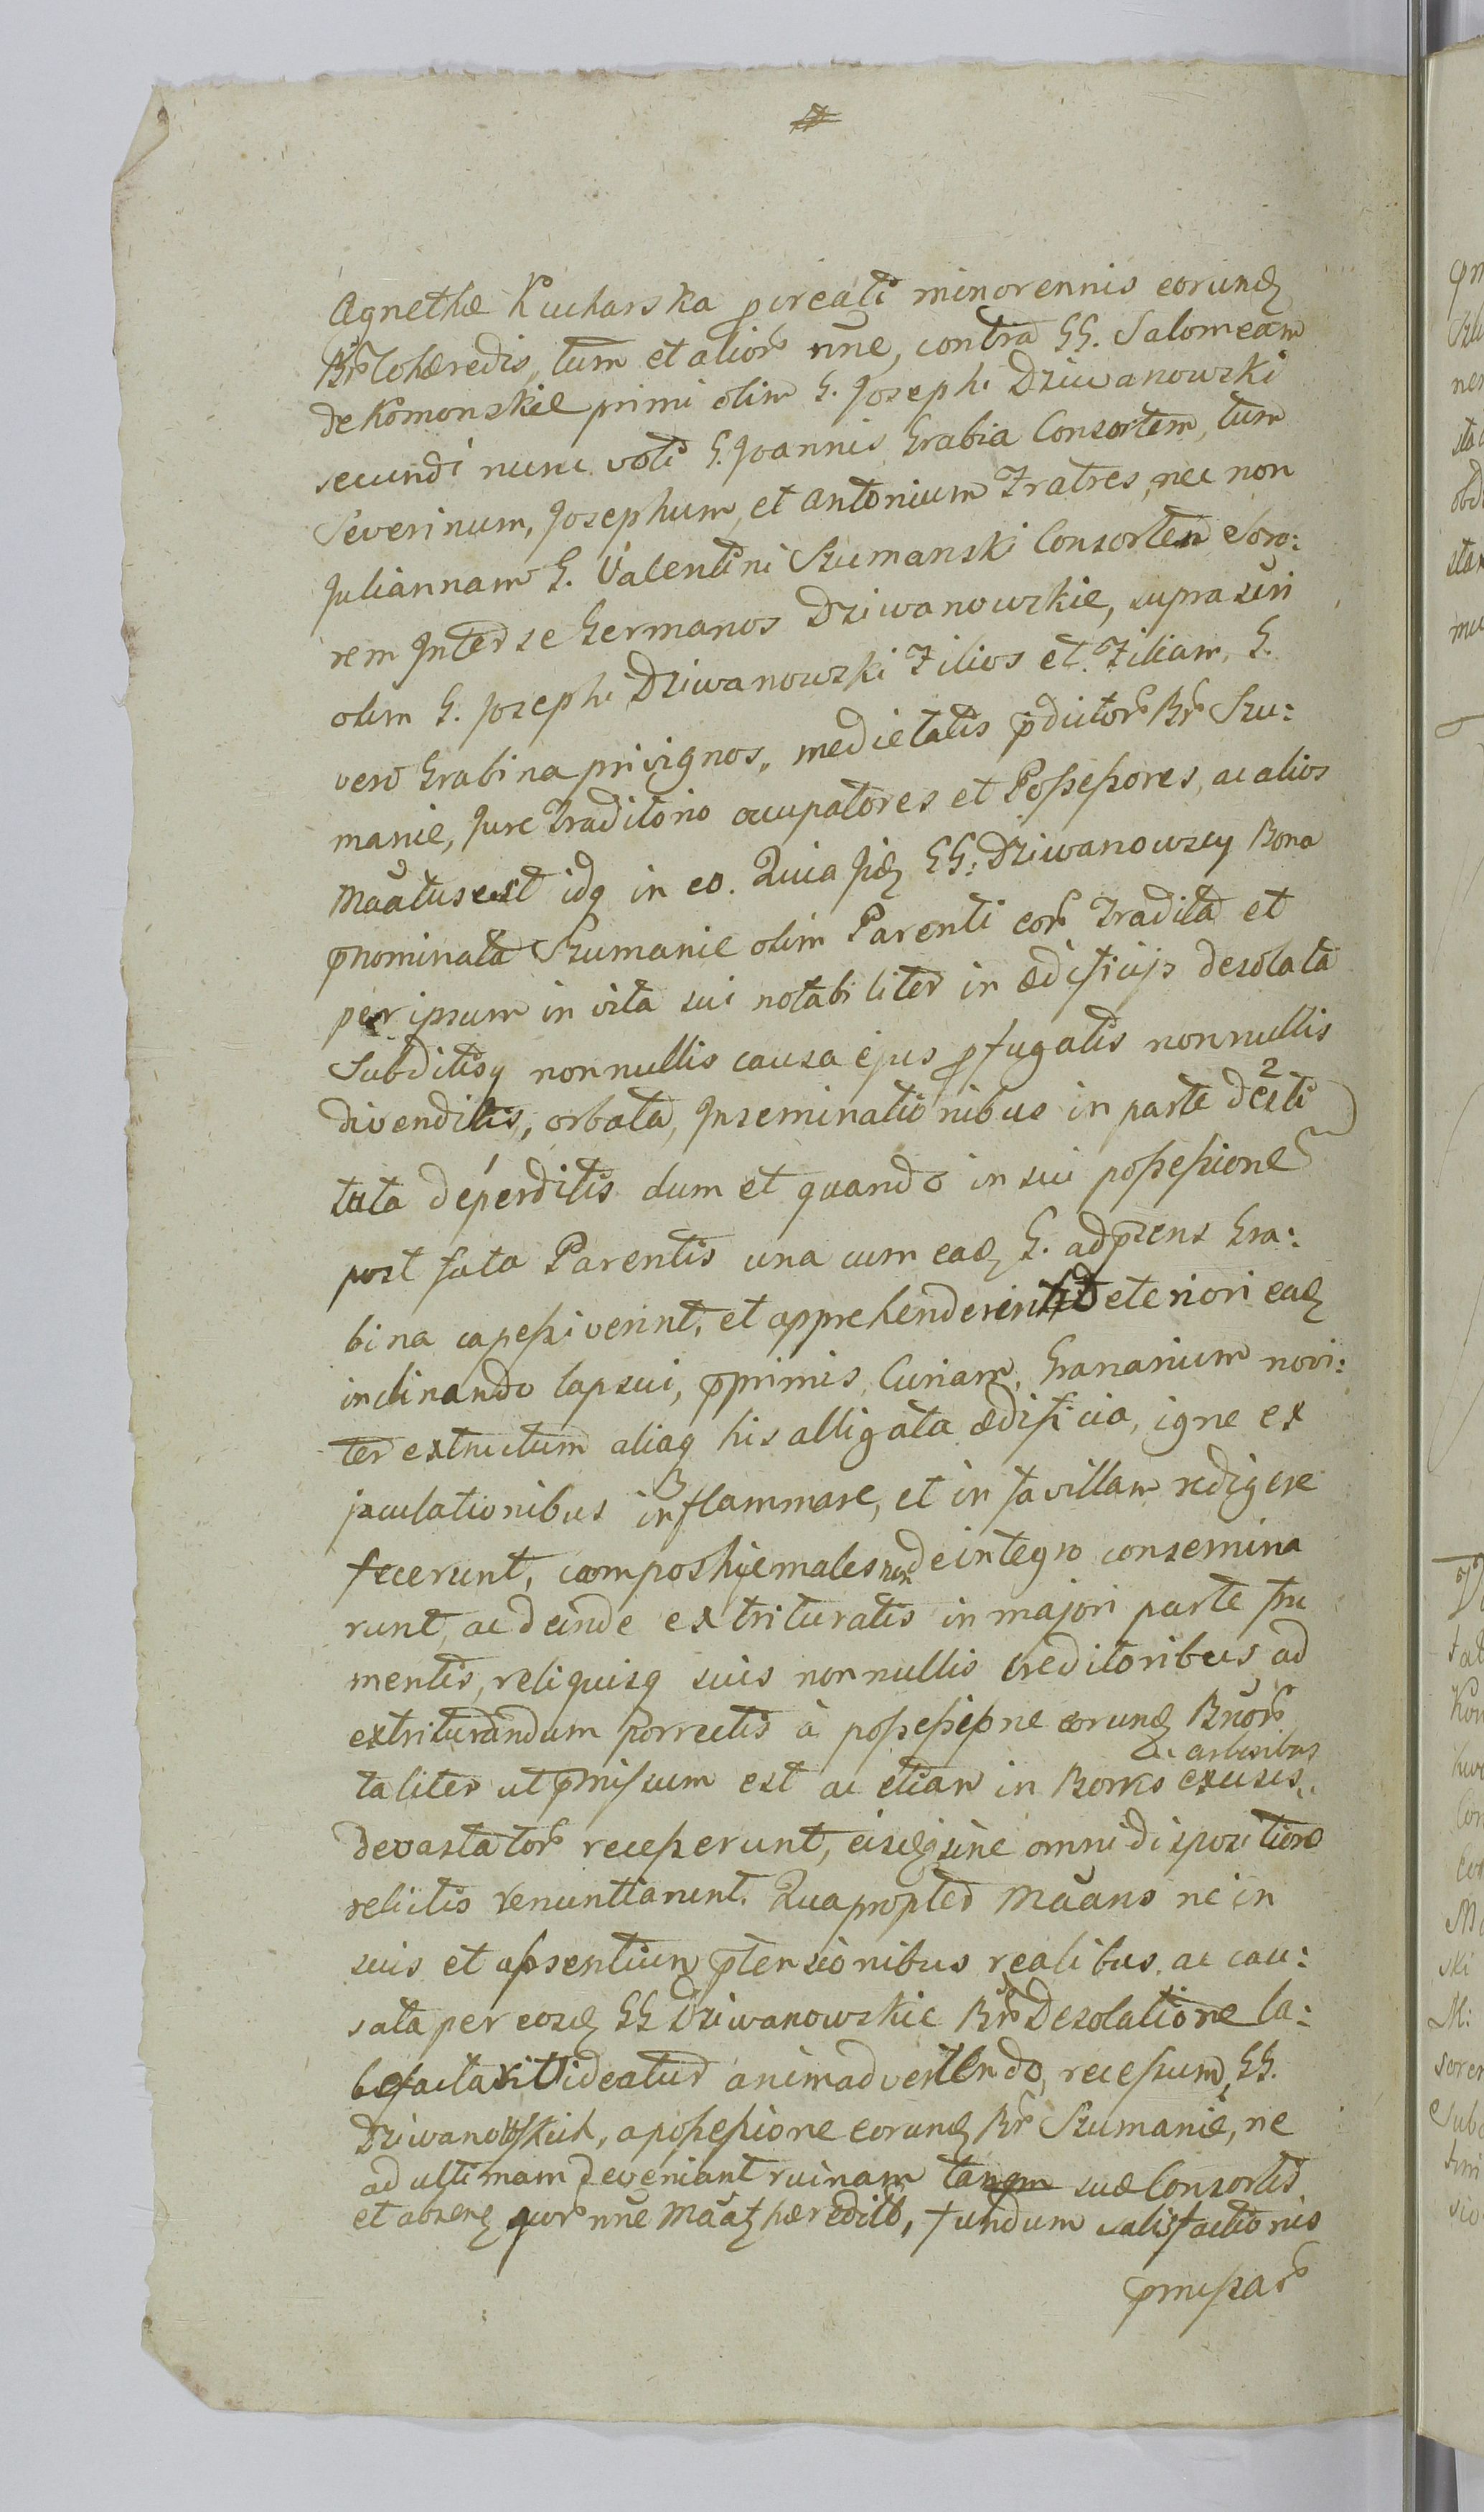 Agnethæ Kucharska p̱creati minorennis eorundꝫ
Br̃ Cohæredis, tum et alior̃ nñe, contra GG. Salomeam
de Komonskie primi olim G. Josephi Dziwanowski
secundi nunc voti G. Joannis Grabia Consortem, tum
Severinum, Josephum, et Antonium Fratres, nec non
Juliannam G. Valentini Szumanski Consortem Soro:
rem Inter se Germanos Dziwanowskie, supra
olim G. Josephi Dziwanowski Filios et Filiam, G.
vero Grabina privignos, medietatis p̄dictor̃ Br̃ Szu:
manie, Jure Traditorio occupatores et Possessores, ac alios
Maãtus est idq in eo. Quia Jidꝫ GG: Dziwanowscy Bona
p̄nominata Szumanie olim Parenti eor̃ Tradita et
per ipsum in vita sui notabiliter in ædificijs desolata
Subditisq nonnullis causa ejus p̱fugatis nonnullis
divenditis, orbata, Inseminationibus in parte desti
tuta déperditis dum et quando in sui possessione
post fata Parentis una cum eadꝫ G. adp̄sens Gra:
bina capessiverint, et apprehenderint Deteriori eadꝫ
inclinando lapsui, p̄primis Curiam, Granarium novi:
ter extructum aliaq his alligata ædificia, igne ex
jaculationibus inflammare, et in favillam redigere
fecerunt, campos hyemales non de integro consemina
runt, ac deinde extrituratis in majori parte fru
mentis, reliquisq suis nonnullis Creditoribus ad
extriturandum Porrectis à possessione eorundꝫ Bñor̃
ac arboribus
taliter ut p̄missum est ac etiam in Borris excisis
Devastator̃ recesserunt, eisq sine omni dispositione
relictis renuntiarunt. Quapropter Maãns ne in
suis et absentium p̄tensionibus realibus, ac cau:
sata per eosdꝫ GG Dziwanowskie Br̃ Desolatione la:
befactari Videatur animadvertendo, recessum GG.
Dziwanowskich, a possessione eorundꝫ Br̃ Szumanie, ne
ad ultimam deveniant ruinam suæ Consortis
et absens quor̃ nñe Maatꝫ hæreditb, fundum satisfactionis
p̄missar̃